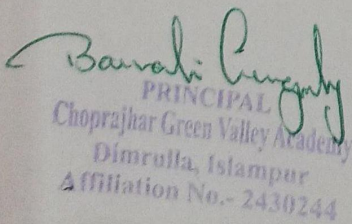 PRINCIPAL
Choprajhar Green Valley Academy
Dimrulla, Islampur
Affiliation No.- 2430244